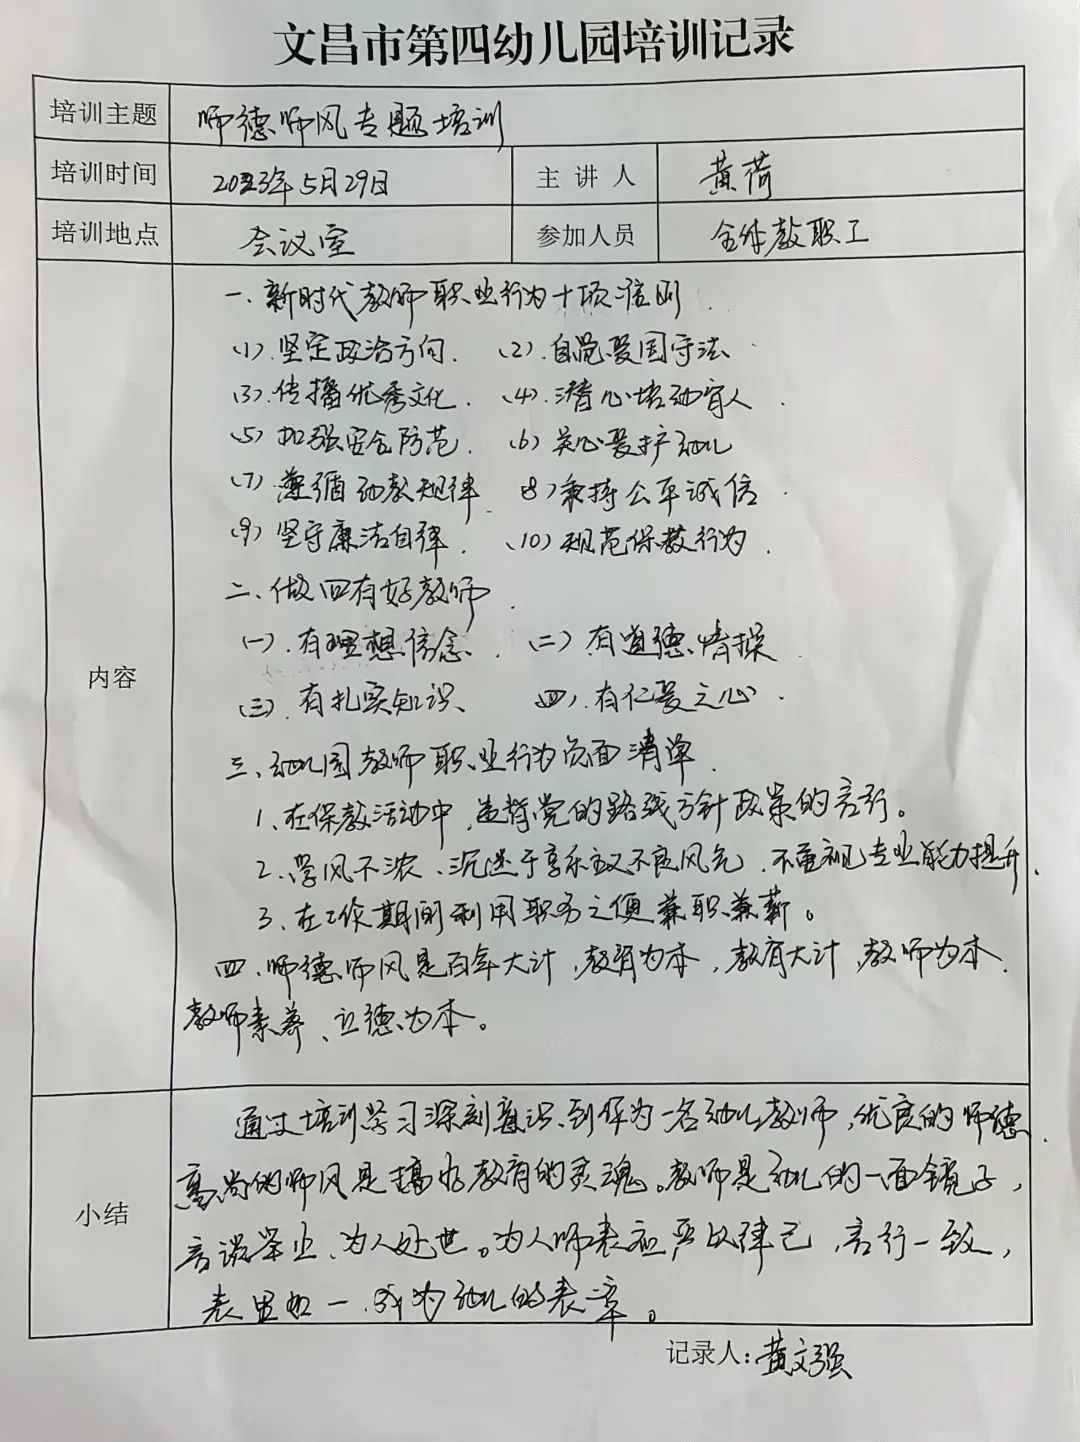 文昌市第四幼儿园培训记录
培训主题 师德师风专题培训
培训时间 2023年5月29日 主讲人 黄荷
培训地点 会议室 参加人员 全体教职工
内容
一、新时代教师职业行为十项准则.
(1).坚定政治方向. (2).自觉爱国守法.
(3).传播优秀文化. (4).潜心培幼育人.
(5)加强安全防范. (6)关心爱护幼儿
(7)遵循幼教规律. (8)秉持公平诚信.
(9)坚守廉洁自律. (10)规范保教行为.
二、做四有好教师.
(一).有理想信念、. (二)有道德情操
(三).有扎实知识、 (四).有仁爱之心.
三、幼儿园教师职业行为负面清单.
1、在保教活动中,违背党的路线方针政策的言行。
2、学风不浓、沉迷于享乐主义不良风气,不重视专业能力提升.
3、在工作期间利用职务之便兼职兼薪。
四、师德师风是百年大计,教育为本,教育大计,教师为本.
教师素养、立德为本。
小结
通过培训学习深刻意识到作为一名幼儿教师,优良的师德.
高尚的师风是搞好教育的灵魂。教师是幼儿的一面镜子,
言谈举止、为人处世。为人师表应严以律己,言行一致,
表里如一.成为幼儿的表率。
记录人:黄文强